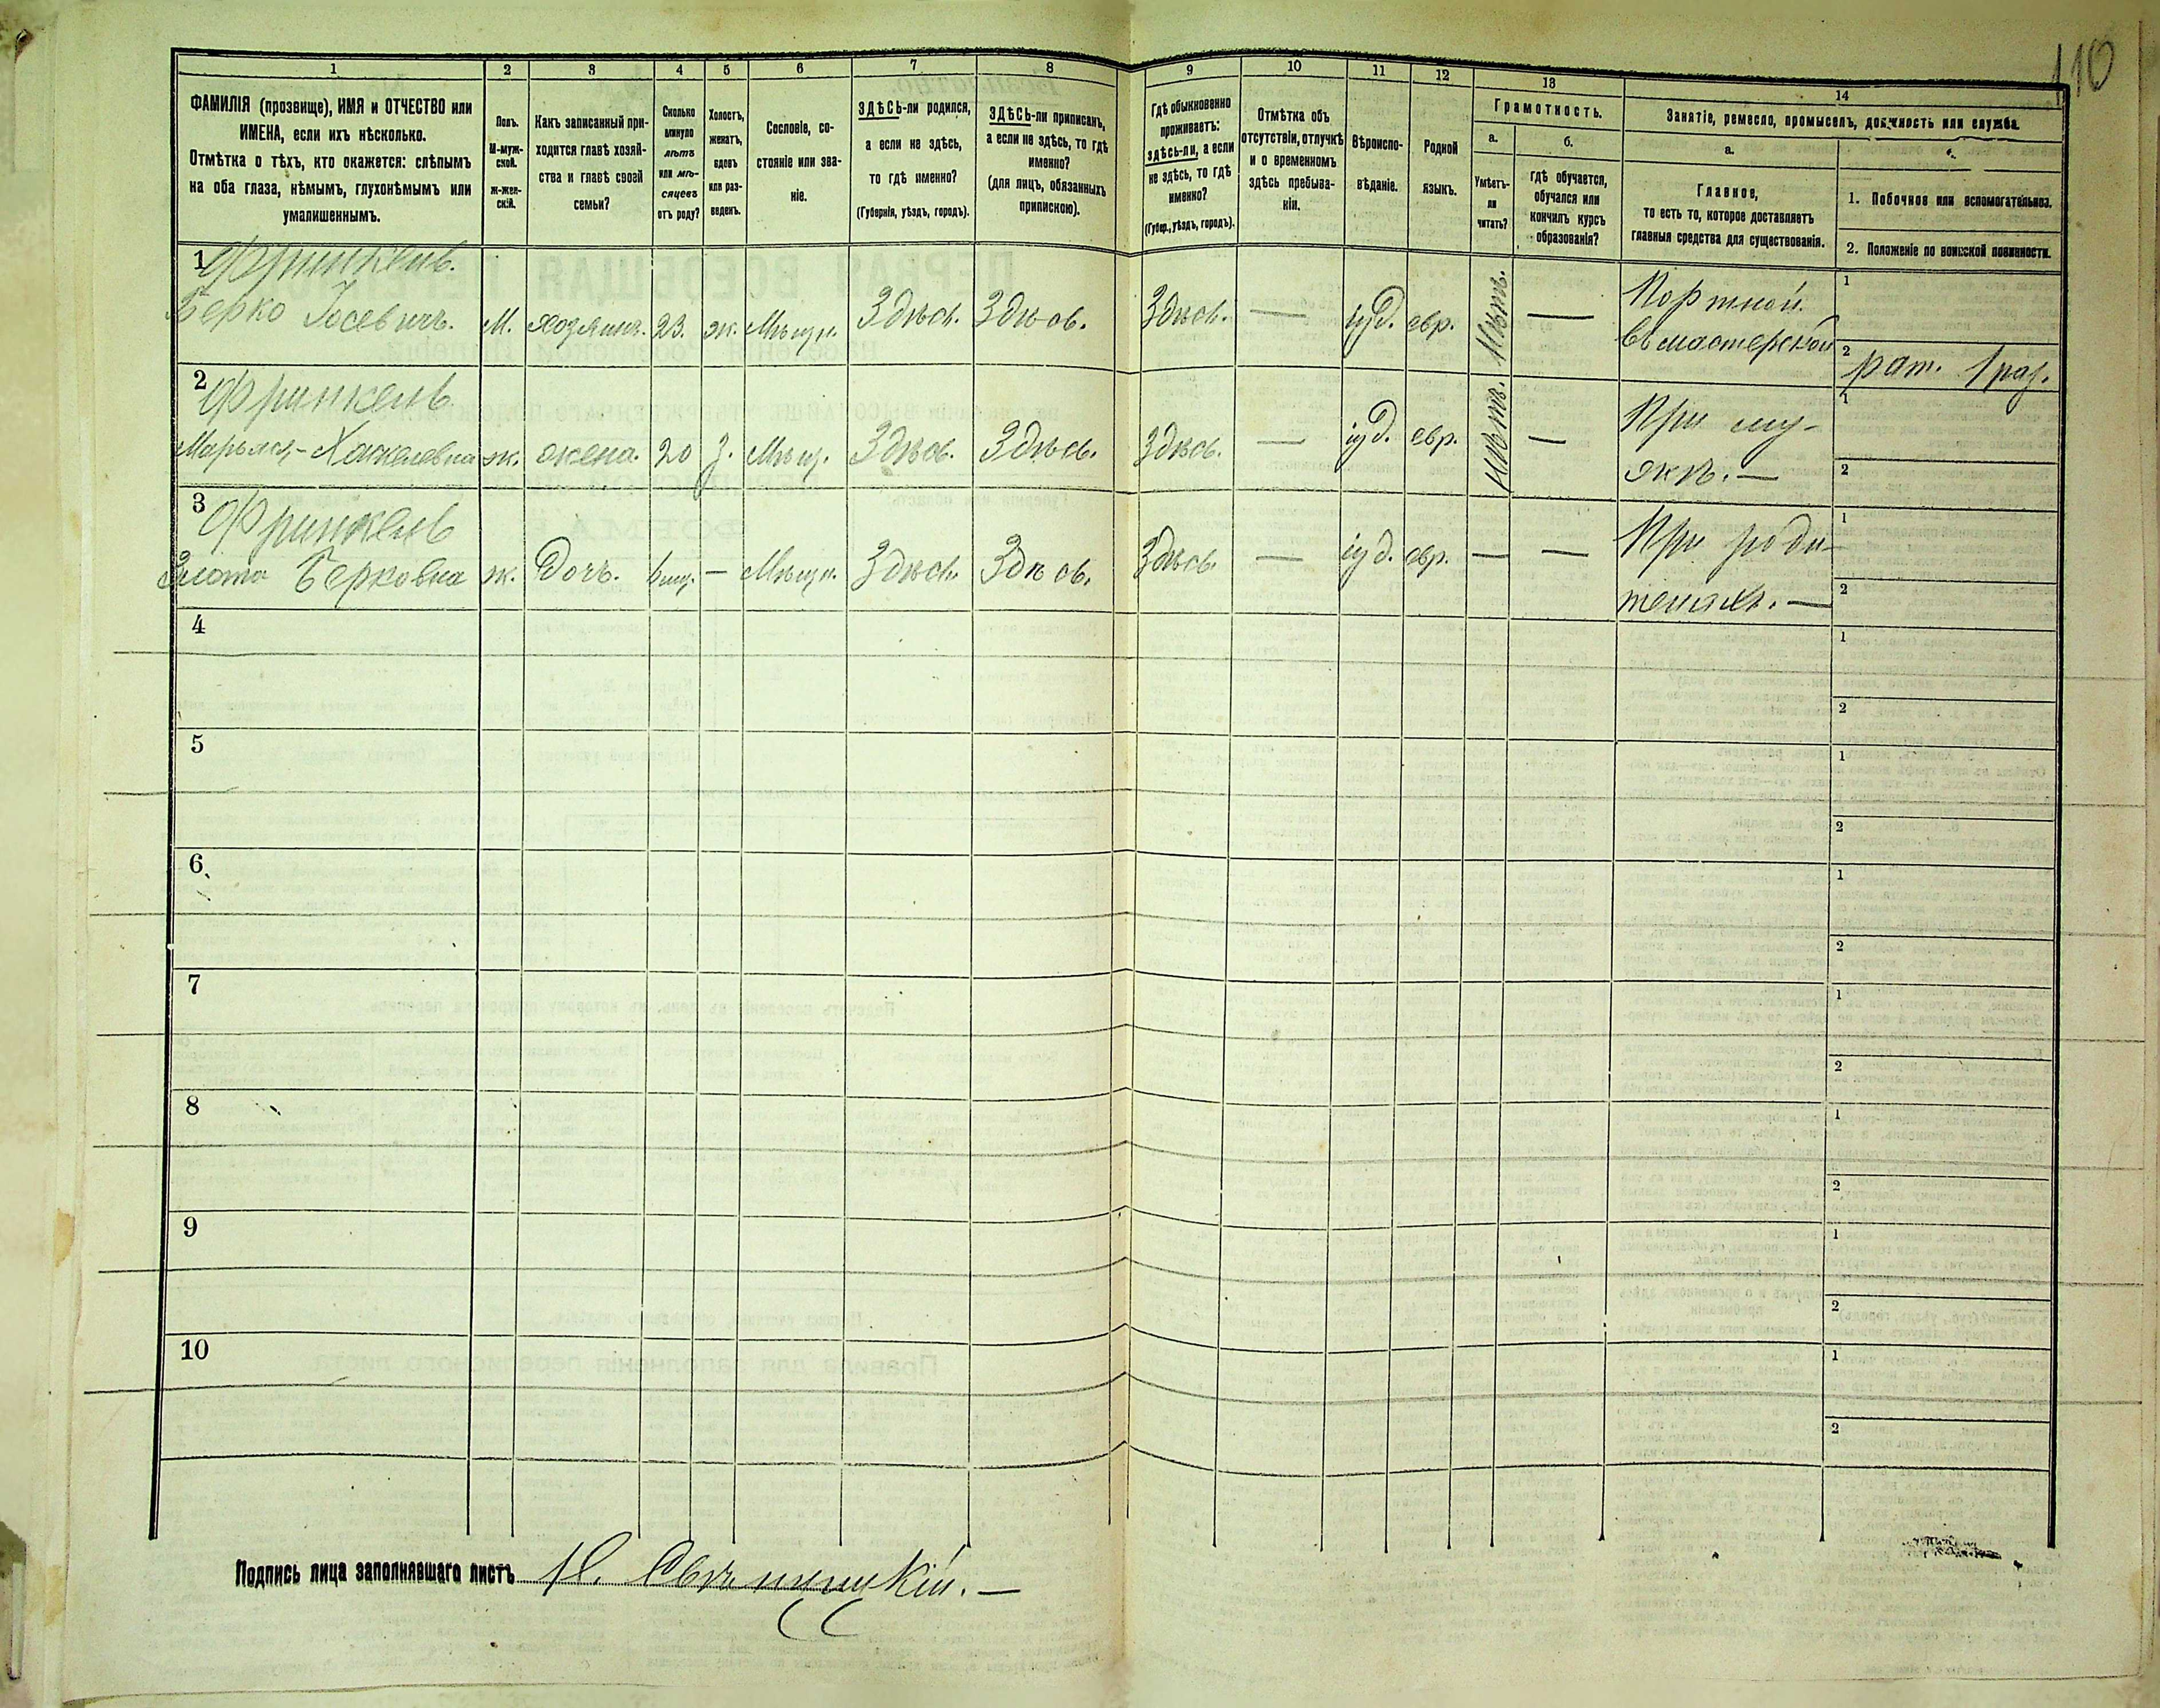 110
1 2 3 4 5 6 7 8 9 10 11 12 13 14
ФАМИЛІЯ (прозвище), ИМЯ и ОТЧЕСТВО или
ИМЕНА, если ихъ нѣсколько.
Отмѣтка о тѣхъ, кто окажется: слѣпымъ
на оба глаза, нѣмымъ, глухонѣмымъ или
умалишеннымъ.
Полъ.
М-муж-
ской.
Ж-жен-
скій.
Какъ записанный при-
ходится главѣ хозяй-
ства и главѣ своей
семьи?
Сколько
минуло
лѣтъ
или мѣ-
сяцевъ
отъ роду?
Холостъ,
женатъ,
вдовъ
или раз-
веденъ.
Сословіе, со-
стояніе или зва-
ніе.
ЗДѢСЬ-ли родился,
а если не здѣсь,
то гдѣ именно?
(Губернія, уѣздъ, городъ).
ЗДѢСЬ-ли приписанъ,
а если не здѣсь, то гдѣ
именно?
(для лицъ, обязанныхъ
припискою).
Гдѣ обыкновенно
проживаетъ:
здѣсь-ли, а если
не здѣсь, то гдѣ
именно?
(Губер., уѣздъ, городъ).
Отмѣтка объ
отсутствіи, отлучкѣ
и о временномъ
здѣсь пребыва-
ніи.
Вѣроиспо-
вѣданіе.
Родной
языкъ.
Грамотность.
а.
Умѣетъ-
ли
читать?
б.
гдѣ обучается,
обучался или
кончилъ курсъ
образованія?
Занятіе, ремесло, промыселъ, должность или служба.
а.
Главное,
то есть то, которое доставляетъ
главныя средства для существованія.
1. Побочное или вспомогательное.
2. Положеніе по воинской повинности.
1 Фринкель.
Берко Іосевичъ. М. хозяинъ. 23. ж. Мѣщн. Здѣсь. Здѣсь. Здѣсь. — іуд. евр. Нѣтъ. — Портной.
въ мастерской
1
2 рат. 1 раз.
2 Фринкель
Марьяся-Хацкелевна ж. жена. 20 з. Мѣщ. Здѣсь. Здѣсь. Здѣсь. — іуд. евр. нѣтъ. — При му-
жѣ. —
1
2
3 Фринкель
Злота Берковна ж. Дочь. — Мѣщн. Здѣсь. Здѣсь. Здѣсь. — іуд. евр. — — При роди-
теляхъ. —
1
2
4
1
2
5
1
2
6
1
2
7
1
2
8
1
2
9
1
2
10
1
2
Подпись лица заполнявшаго листъ